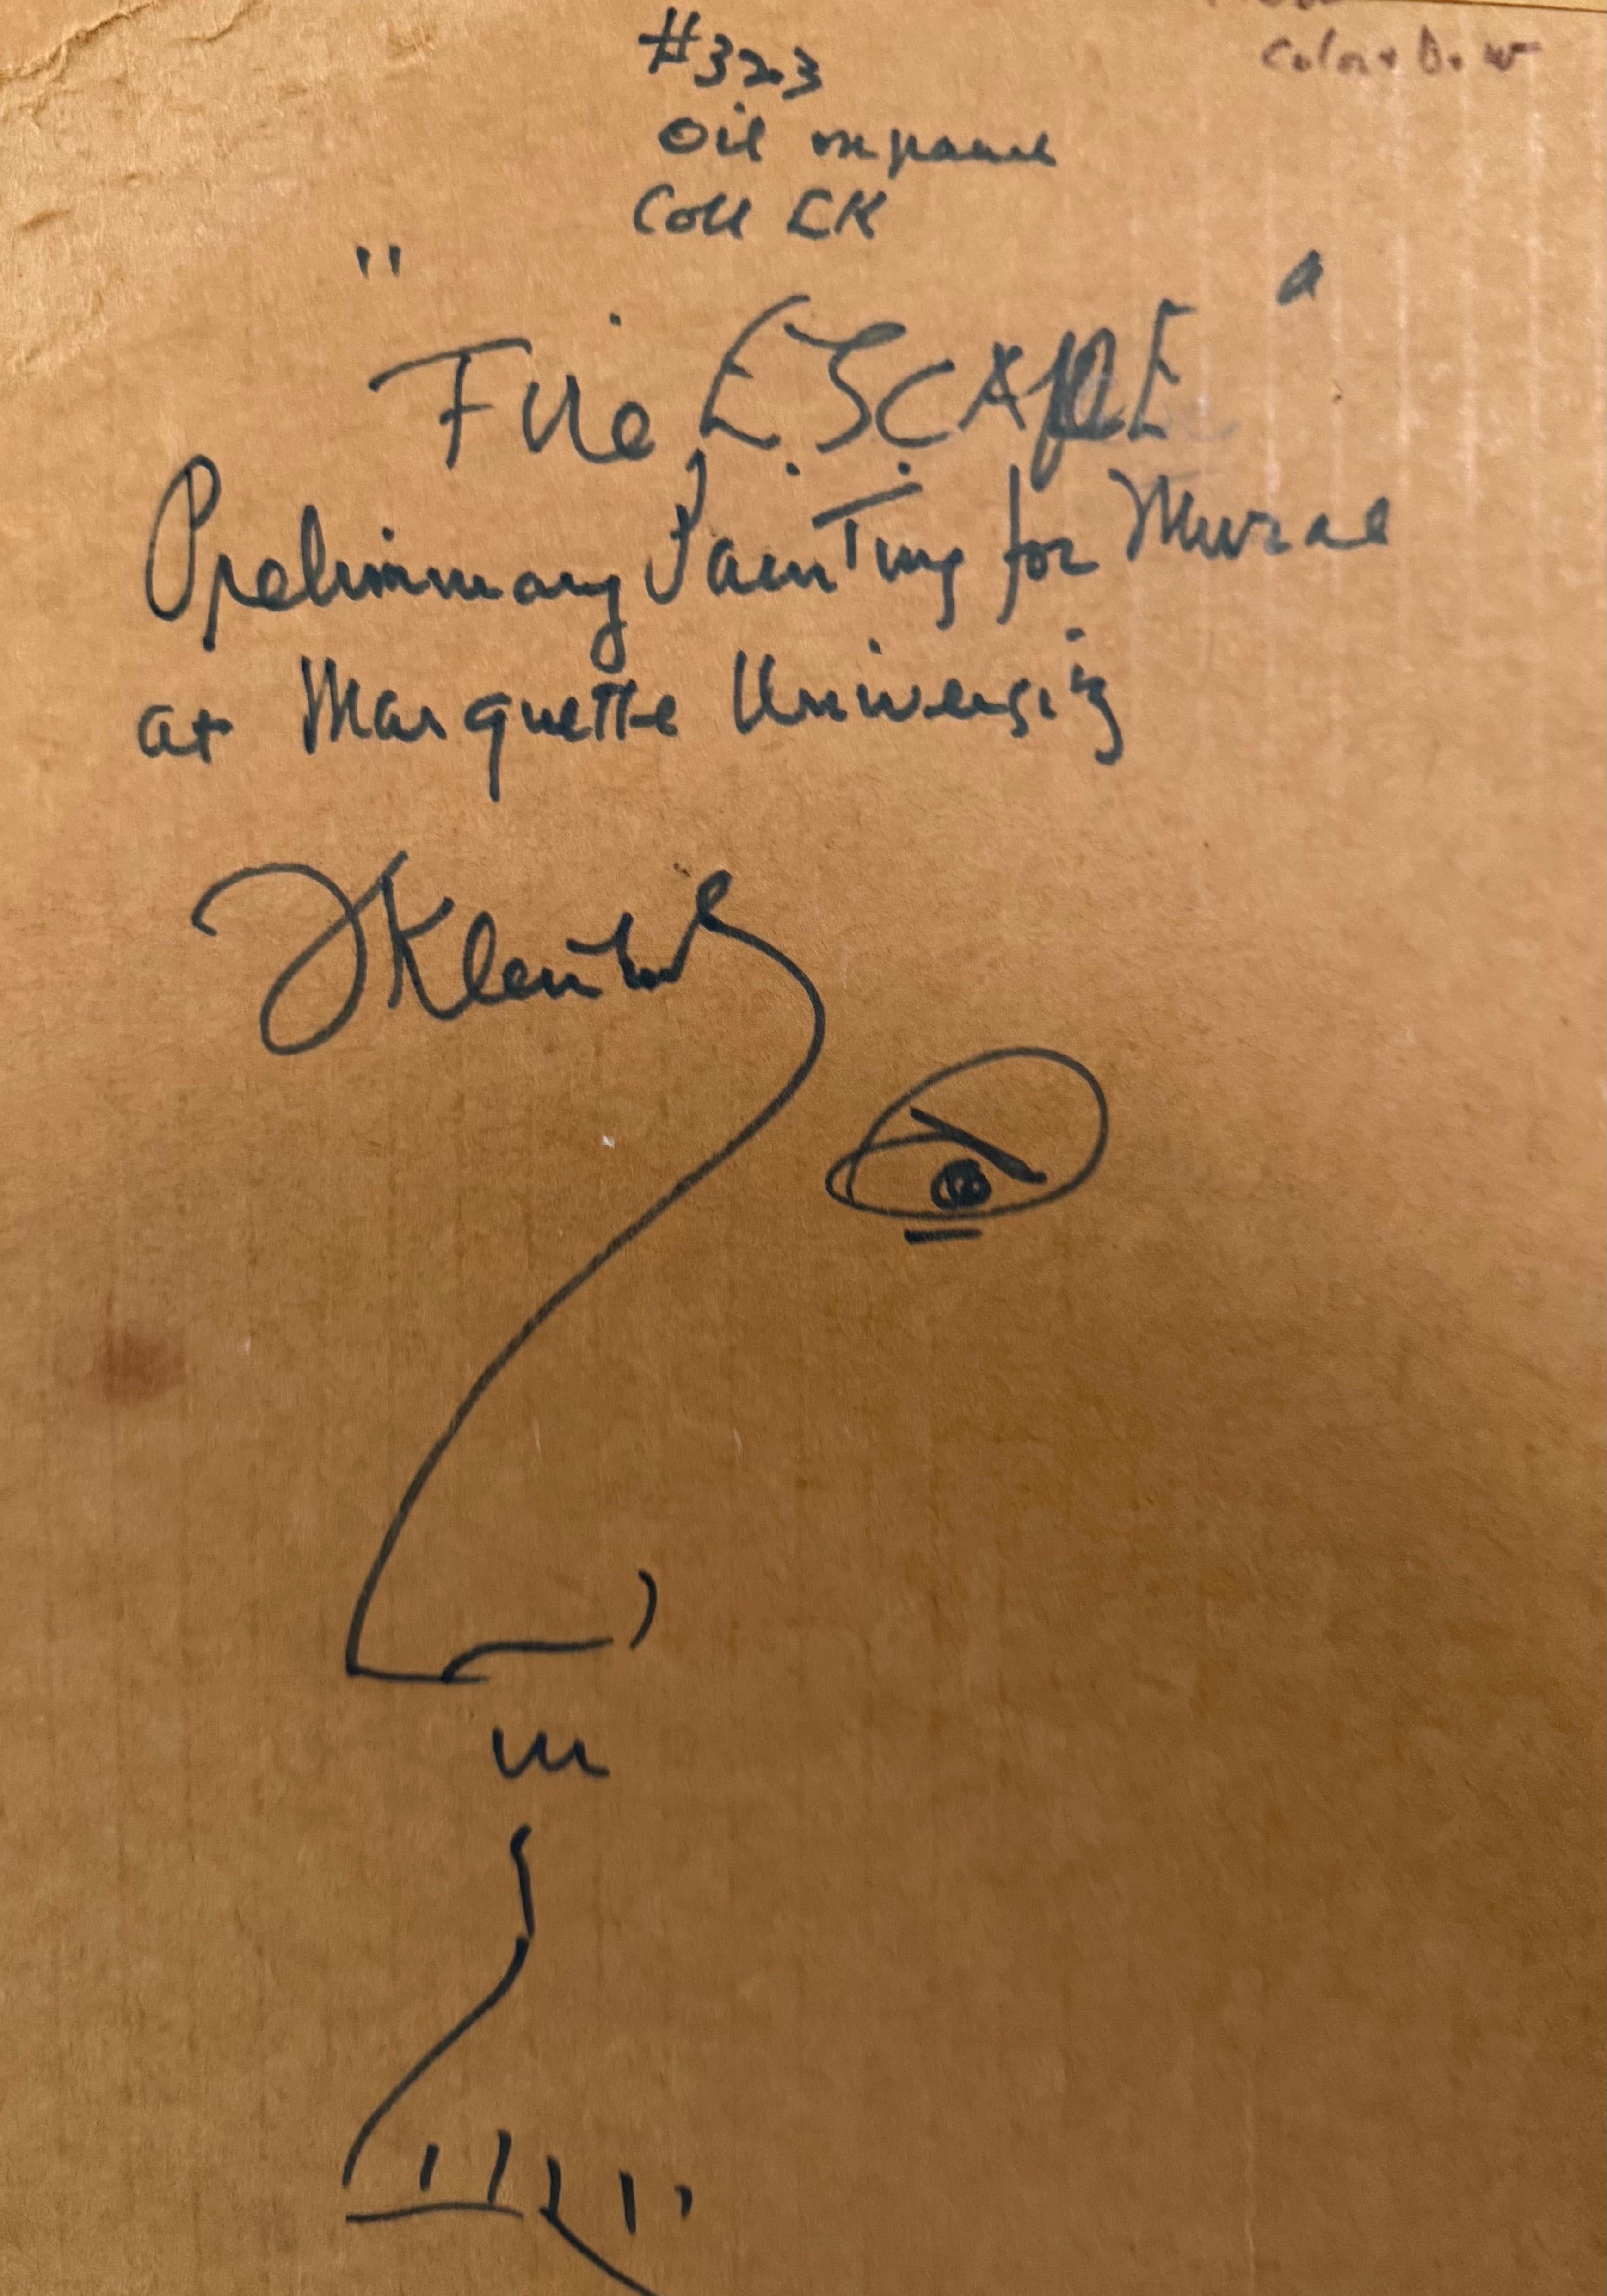 Color & B. W
#323
Oil on panel
Coll LK
"Fire ESCAPE"
Preliminary Painting for Mural
at Marquette University